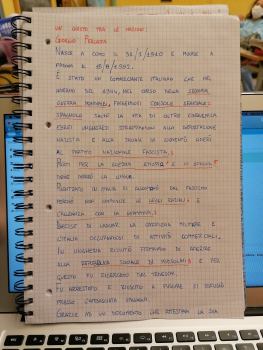 UN GIUSTO TRA LE NAZIONI:
GIORGIO PERLASCA
NASCE A COMO IL 31/1/1910 E MUORE A
PADOVA IL 15/8/1992.
È STATO UN COMMERCIANTE ITALIANO CHE NEL
INVERNO DEL 1944, NEL CORSO DELLA SECONDA
GUERRA MONDIALE, FINGENDOSI CONSOLE GENERALE
SPAGNOLO SALVÒ LA VITA DI OLTRE CINQUEMILA
EBREI UNGHERESI STRAPPANDOLI ALLA DEPORTAZIONE
NAZISTA E ALLA
AL PARTITO NAZIONALE FASCISTA.
PARTÌ PER LA GUERRA E IN SPAGNA
DOVE IMPARÒ LA LINGUA.
RIENTRATO IN ITALIA SI ALLONTANÒ DAL FASCISMO
PERCHÉ NON CONDIVISE LE LEGGI RAZZIALI E
L'ALLEANZA CON LA GERMANIA.
DECISE DI LASCIARE LA CARRIERA MILITARE E
L'ITALIA OCCUPANDOSI DI ATTIVITÀ COMMERCIALI.
IN UNGHERIA RICEVETTE DI ADERIRE
ALLA REPUBBLICA SOCIALE DI MUSSOLINI E PER
QUESTO FU RICERCATO DAI TEDESCHI.
FU ARRESTATO E RIUSCITO A FUGGIRE SI RIFUGIÒ
PRESSO L'AMBASCIATA SPAGNOLA.
GRAZIE AD UN DOCUMENTO CHE ATTESTAVA LA SUA